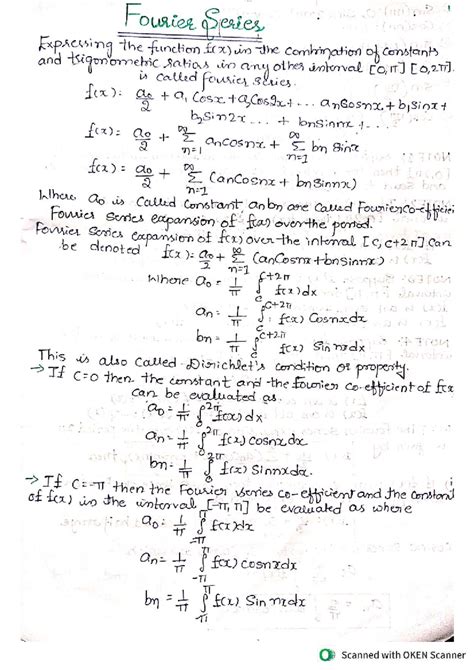 Fourier Series
Expressing the function f(x) in the combination of constants
and trigonometric ratios in any other interval [0,π] [0,2π].
is called fourier series.
f(x): a₀/2 + a₁ cosx + a₂cos2x + ... aₙcosnx + b₁sinx +
b₂sin2x ... + bₙsinnx + ...
f(x) = a₀/2 + ∞Σn=1 aₙcosnx + ∞Σn=1 bₙ sinx
f(x) = a₀/2 + ∞Σn=1 (aₙcosnx + bₙsinnx)
Where a₀ is called constant aₙbₙ are called Fourier co-effici
Fourier series expansion of f(x) over the period.
Fourier series expansion of f(x) over the interval [c, c+2π] can
be denoted f(x) = a₀/2 + ∞Σn=1 (aₙcosnx + bₙsinnx)
Where a₀ = 1/π ∫c^c+2π f(x)dx
aₙ = 1/π ∫c^c+2π f(x) cosnxdx
bₙ = 1/π ∫c^c+2π f(x) sinnxdx
This is also called Dirichlet's condition or property.
→ If c=0 then the constant and the fourier co-efficient of f(x
can be evaluated as.
a₀ = 1/π ∫0^2π f(x)dx
aₙ = 1/π ∫0^2π f(x)cosnxdx
bₙ = 1/π ∫0^2π f(x) sinnxdx.
→ If c=-π then the Fourier series co-efficient and the constant
of f(x) in the interval [-π,π] be evaluated as where
a₀ = 1/π ∫-π^π f(x)dx
aₙ = 1/π ∫-π^π f(x)cosnxdx
bₙ = 1/π ∫-π^π f(x) sinnxdx
Scanned with OKEN Scanner